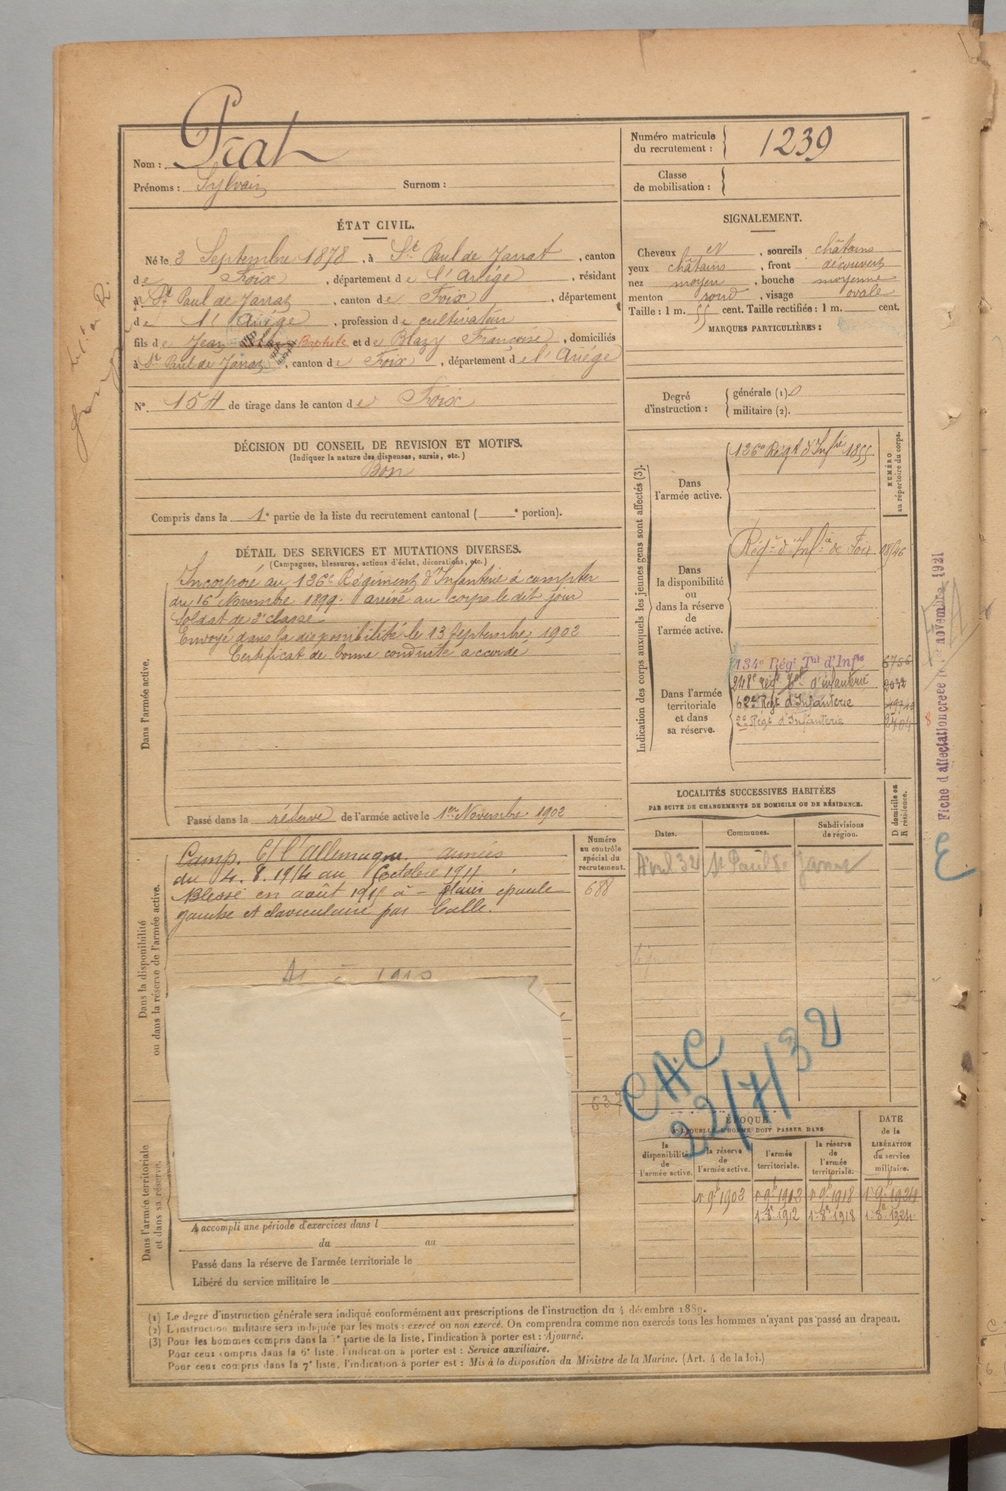 Nom : Prat
Prénoms : Sylvain Surnom :
Numéro matricule du recrutement : 1239
Classe de mobilisation :
ÉTAT CIVIL.
Né le 3 Septembre 1878, à St Paul de Jarrat, canton
de Foix, département de l'Ariège, résidant
à St Paul de Jarrat, canton de Foix, département
de l'Ariège, profession de cultivateur
fils de Jean Baptiste et de Blazy Françoise, domiciliés
à St Paul de Jarrat, canton de Foix, département de l'Ariège
N° 154 de tirage dans le canton de Foix
SIGNALEMENT.
Cheveux et, sourcils châtains
yeux châtains, front découvert
nez moyen, bouche moyenne
menton rond, visage ovale
Taille : 1 m. 55 cent. Taille rectifiée : 1 m. cent.
MARQUES PARTICULIÈRES :
Degré d'instruction : générale (1).
militaire (2).
DÉCISION DU CONSEIL DE REVISION ET MOTIFS.
(Indiquer la nature des dispenses, sursis, etc.)
Bon
Compris dans la 1e partie de la liste du recrutement cantonal ( e portion).
DÉTAIL DES SERVICES ET MUTATIONS DIVERSES.
(Campagnes, blessures, actions d'éclat, décorations, etc.)
Dans l'armée active.
Incorporé au 136e Régiment d'Infanterie à compter
du 16 Novembre 1899. arrivé au corps le dit jour
Soldat de 2e classe
Envoyé dans la disponibilité le 13 Septembre 1902
Certificat de bonne conduite accordé
Passé dans la réserve de l'armée active le 1er Novembre 1902
Dans la disponibilité ou dans la réserve de l'armée active.
Camp. c/ l'Allemagne armées
du 4. 8. 1914 au Octobre 1914
Blessé en août 1914 à épaule
gauche et claviculaire par balle.
Numéro au contrôle spécial du recrutement.
688
637
Dans l'armée territoriale et dans sa réserve.
A accompli une période d'exercices dans l
du au
Passé dans la réserve de l'armée territoriale le
Libéré du service militaire le
Indication des corps auxquels les jeunes gens sont affectés (3).
NUMÉRO au répertoire du corps.
Dans l'armée active.
136e Régt d'Infie 1855
Dans la disponibilité ou dans la réserve de l'armée active.
Régt d'Infie de Foix
Dans l'armée territoriale et dans sa réserve.
134e Régt Tal d'Infie 6756
248e régt d'infanterie
62e Régt d'Infanterie
2e Régt d'Infanterie
Fiche d'affectation créée le novembre 1921
LOCALITÉS SUCCESSIVES HABITÉES
PAR SUITE DE CHANGEMENTS DE DOMICILE OU DE RÉSIDENCE.
Dates. Communes. Subdivisions de région. D domicile ou R résidence.
Avril 32 St Paul de Jarrat
CAC
22/7/32
ÉPOQUE
À LAQUELLE L'HOMME DOIT PASSER DANS
la disponibilité de l'armée active. la réserve de l'armée active. l'armée territoriale. la réserve de l'armée territoriale. DATE de la LIBÉRATION du service militaire.
1 9bre 1902 1 9bre 1913 1 9bre 1918 1 9bre 1924
1 8bre 1912 1 8bre 1918 1 8bre 1924
(1) Le degré d'instruction générale sera indiqué conformément aux prescriptions de l'instruction du 4 décembre 1889.
(2) L'instruction militaire sera indiquée par les mots : exercé ou non exercé. On comprendra comme non exercés tous les hommes n'ayant pas passé au drapeau.
(3) Pour les hommes compris dans la 2e partie de la liste, l'indication à porter est : Ajourné.
Pour ceux compris dans la 6e liste, l'indication à porter est : Service auxiliaire.
Pour ceux compris dans la 7e liste, l'indication à porter est : Mis à la disposition du Ministre de la Marine. (Art. 4 de la loi.)